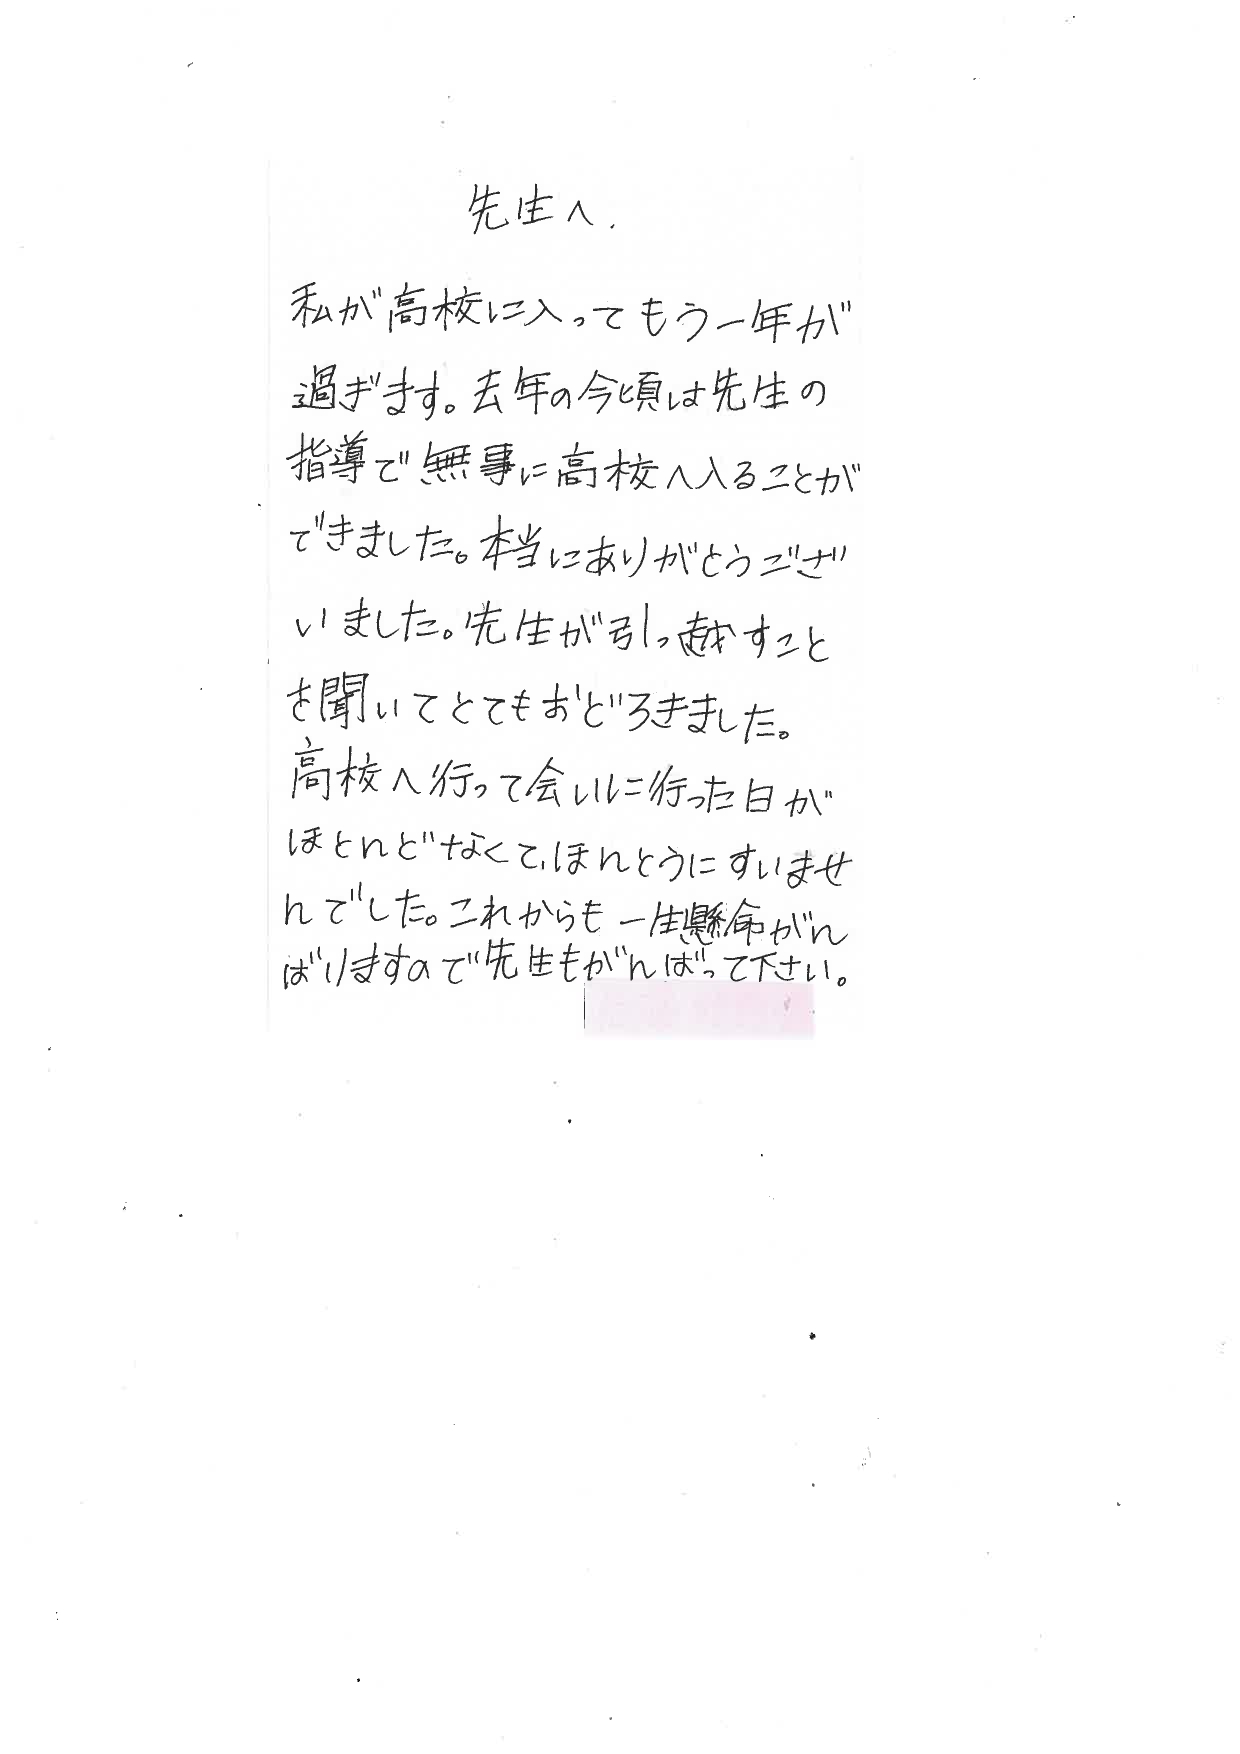 先生へ.
私が高校に入ってもう一年が
過ぎます。去年の今頃は先生の
指導で無事に高校へ入ることが
できました。本当にありがとうござ
いました。先生が引っ越すこと
を聞いてとてもおどろきました。
高校へ行って会いに行った日が
ほとんどなくて、ほんとうにすいませ
んでした。これからも一生懸命がん
ばりますので先生もがんばって下さい。